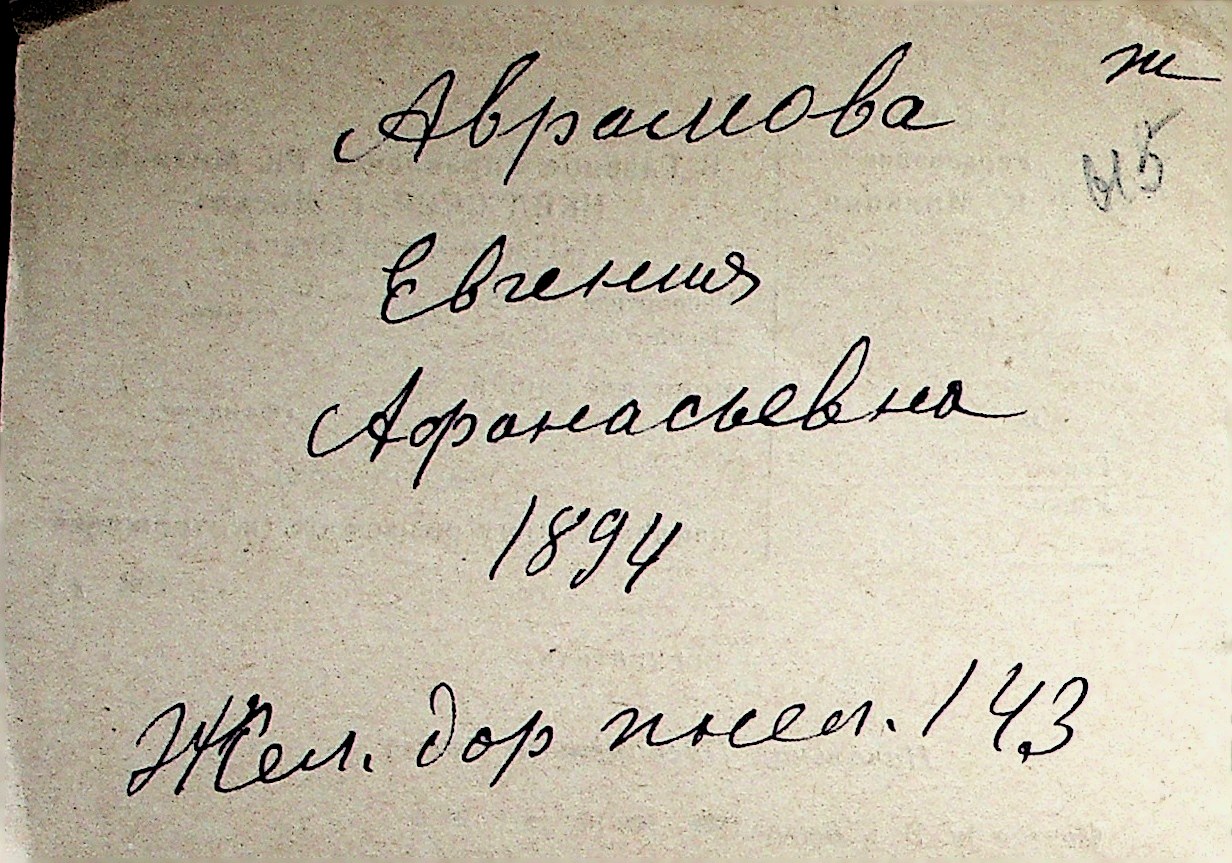 Аврамова
Евгения
Афанасьевна
1894
Жел. дор 143